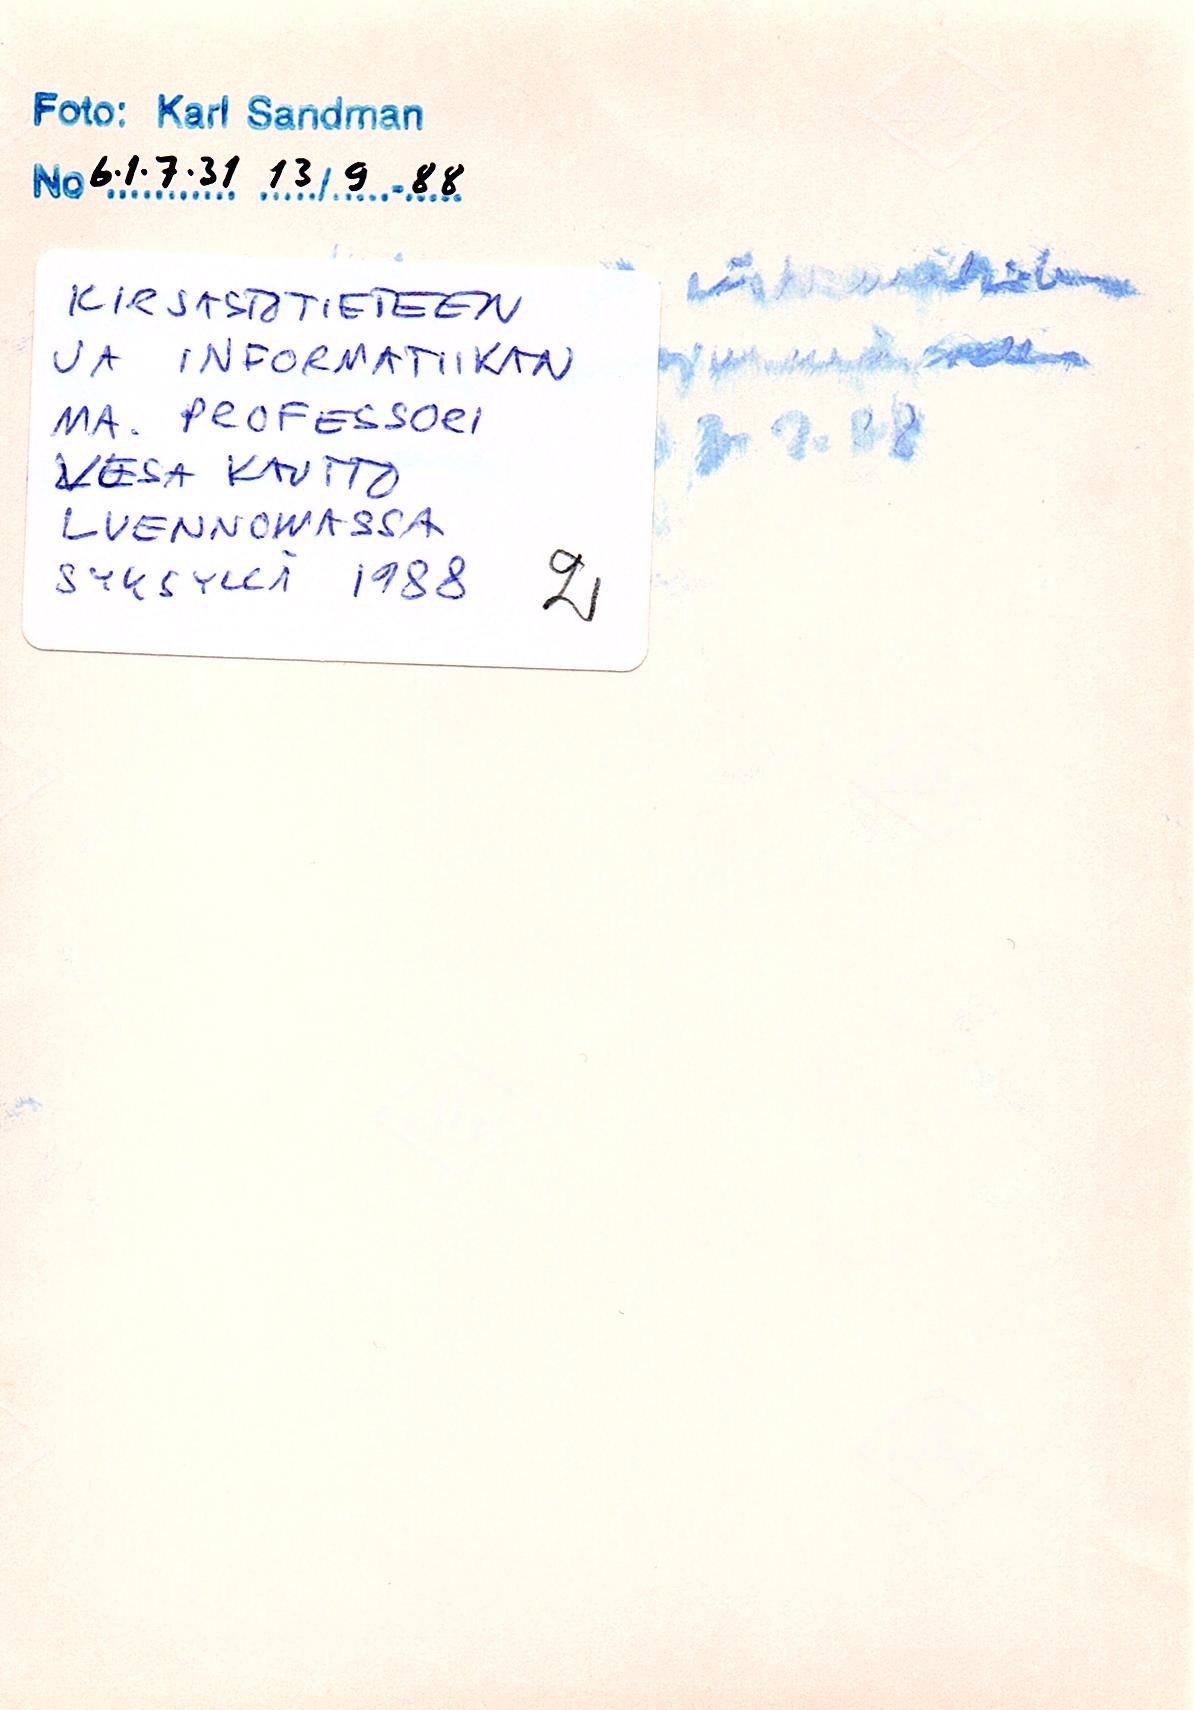 Foto: Karl Sandman
No 6.1.7.31 13/9-88
KIRJASTOTIETEEN
JA INFORMATIIKAN
MA. PROFESSORI
VESA KAUTTO
LUENNOIMASSA
SYKSYLLÄ 1988
2
88